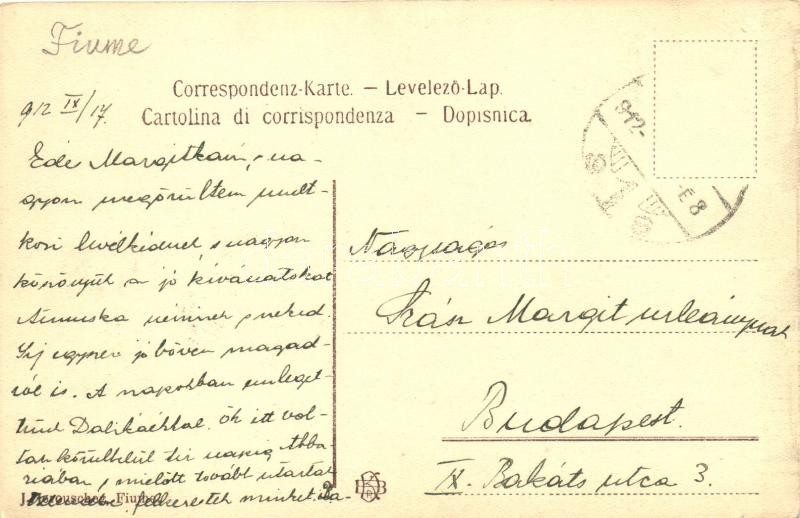 Fiume
Correspondenz-Karte. – Levelező-Lap.
Cartolina di corrispondenza – Dopisnica.
912 IX/17.
Éde Margitkám, na-
gyon megörültem mult-
kori levélkédnek, s nagyon
köszönjük a jó kívánatokat
Annuska néninek, s neked.
Írj egyszer jó bőven magad-
ról is. A napokban emleget-
tünk Dalikáékkal. Ők itt vol-
tak körülbelül tíz napig Abba-
ziában, s mielőtt tovább utaztak
felkerestek minket.
Nagyságos
Szász Margit urleánynak
Budapest.
IX. Bakáts utca 3.
912
E 8